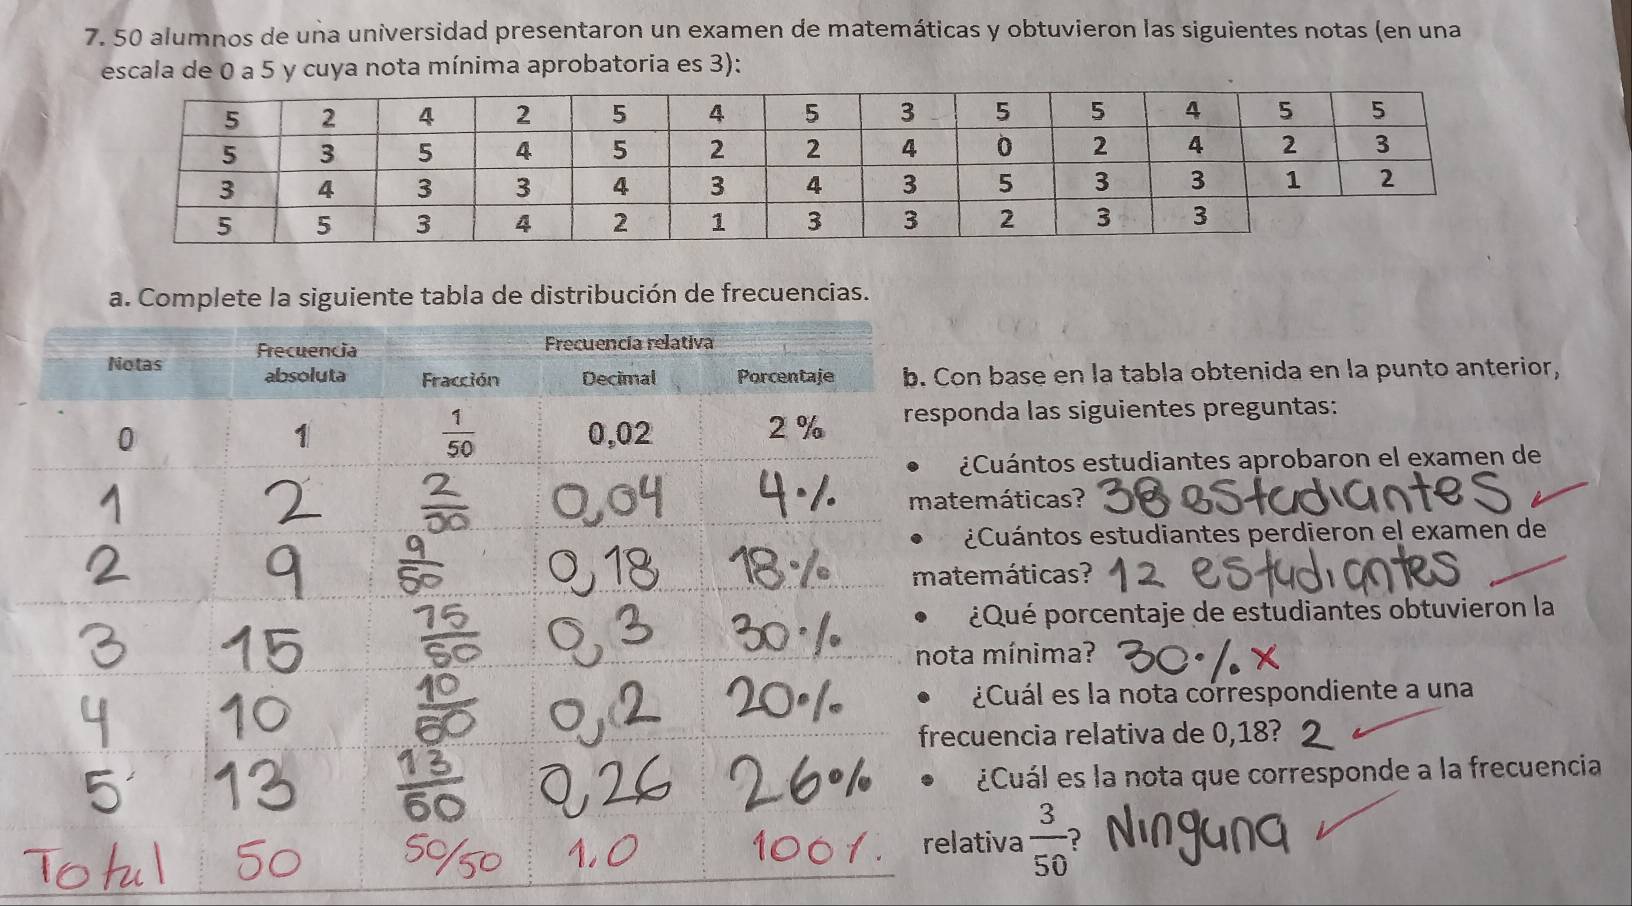 7. 50 alumnos de una universidad presentaron un examen de matemáticas y obtuvieron las siguientes notas (en una
escala de 0 a 5 y cuya nota mínima aprobatoria es 3):
5 2 4 2 5 4 5 3 5 5 4 5 5
5 3 5 4 5 2 2 4 0 2 4 2 3
3 4 3 3 4 3 4 3 5 3 3 1 2
5 5 3 4 2 1 3 3 2 3 3
a. Complete la siguiente tabla de distribución de frecuencias.
Notas Frecuencia absoluta Frecuencia relativa
Fracción Decimal Porcentaje
0 1 1/50 0,02 2 %
1 2 2/50 0,04 4%
2 9 9/50 0,18 18%
3 15 15/50 0,3 30%
4 10 10/50 0,2 20%
5 13 13/50 0,26 26%
Total 50 50/50 1.0 100%.
b. Con base en la tabla obtenida en la punto anterior,
responda las siguientes preguntas:
• ¿Cuántos estudiantes aprobaron el examen de
matemáticas? 38 estudiantes ✓
• ¿Cuántos estudiantes perdieron el examen de
matemáticas? 12 estudiantes ✓
• ¿Qué porcentaje de estudiantes obtuvieron la
nota mínima? 30% x
• ¿Cuál es la nota correspondiente a una
frecuencia relativa de 0,18? 2 ✓
• ¿Cuál es la nota que corresponde a la frecuencia
relativa 3/50? Ninguna ✓